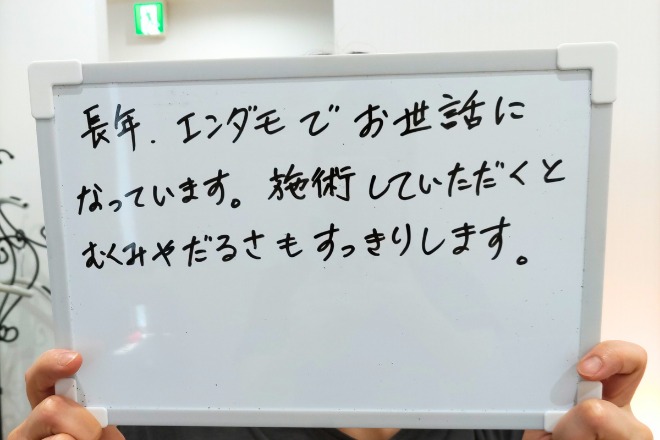 長年、エンダモでお世話に
なっています。施術していただくと
むくみやだるさもすっきりします。